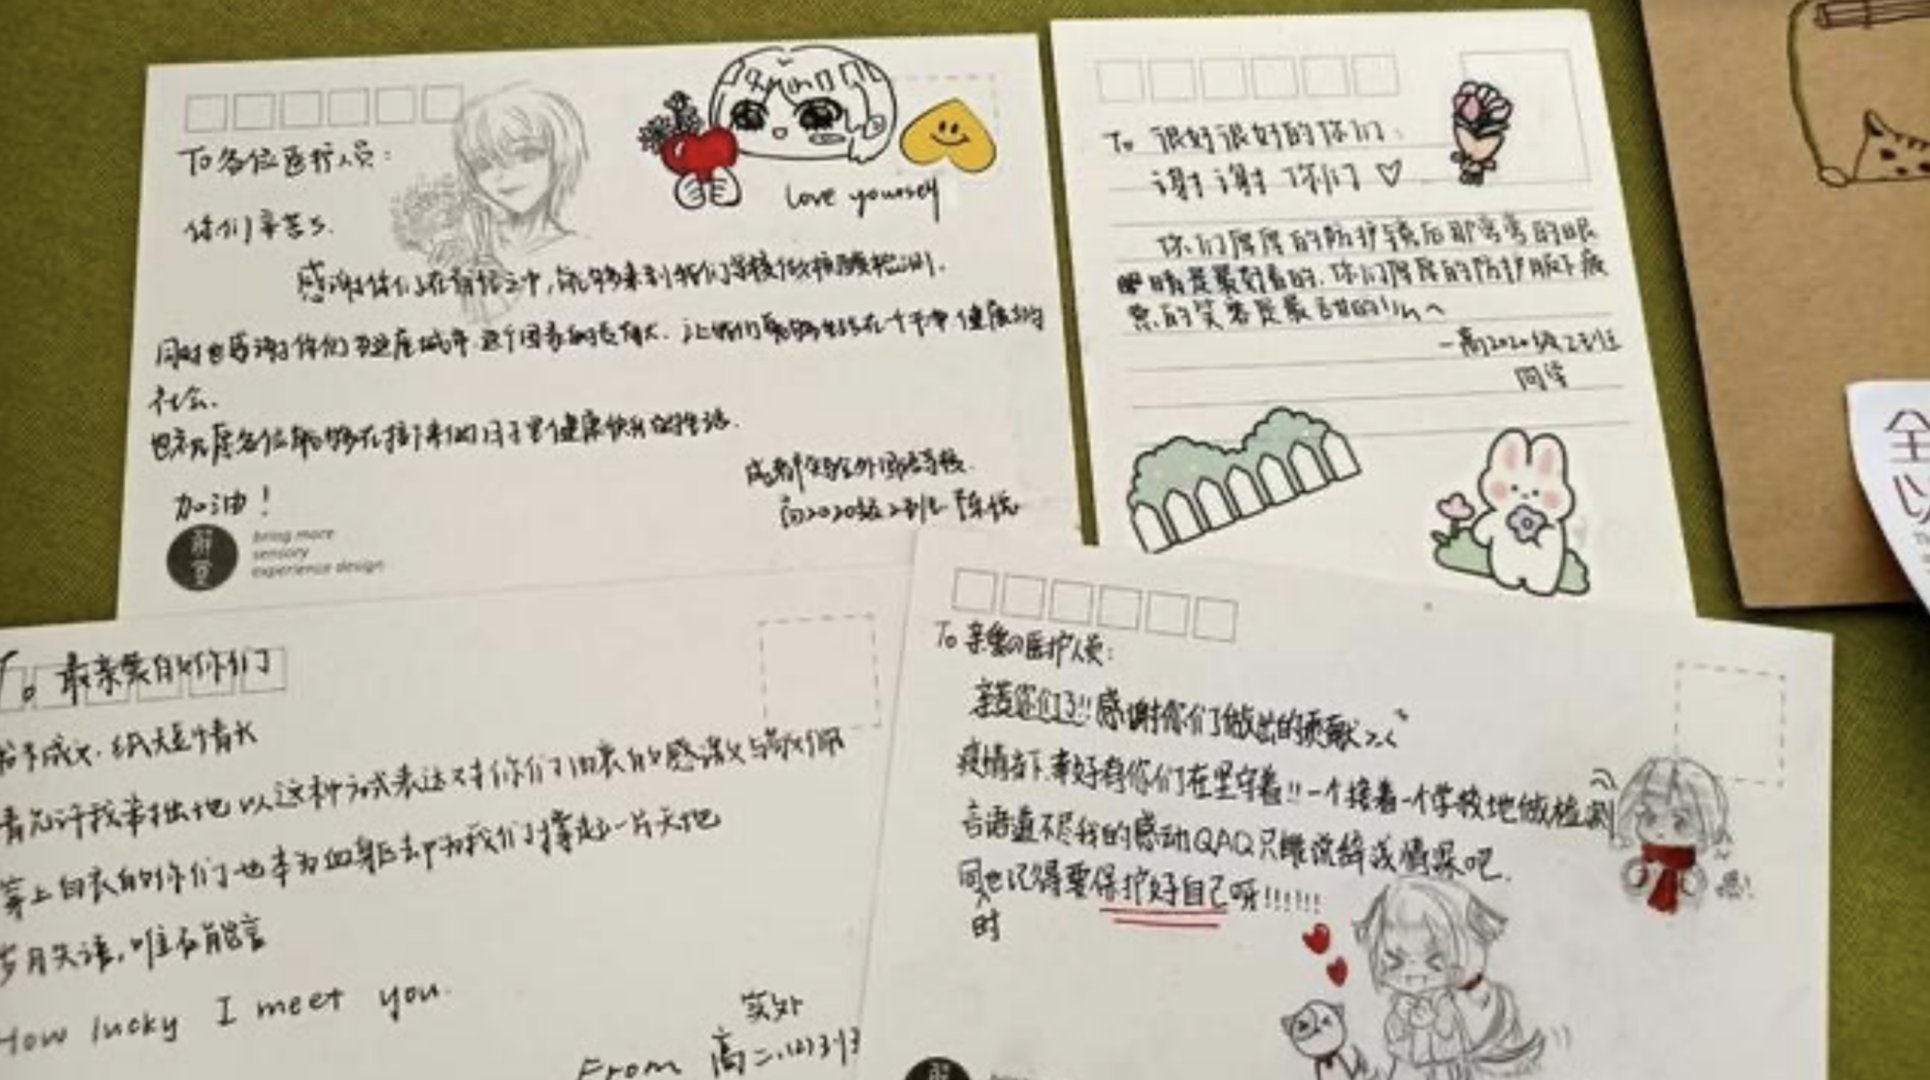 To 各位医护人员:
你们辛苦了.
love yourself
感谢你们在百忙之中,能够来到我们学校做核酸检测.
同时也感谢你们为这座城市、这个国家的贡献.让我们能够生活在一个干净、健康的
社会.
也祝愿各位能够在接下来的日子里健康快乐的生活.
加油!
成都实验外国语学校.
高2020级2班
bring more
sensory
experience design
To 很好很好的你们:
谢谢你们♡
你们厚厚的防护镜后那弯弯的眼
睛是最好看的.你们厚厚的防护服下疲
惫的笑容是最甜的!
—高2020级2班
同学
全
以
To 最亲爱的你们
成文.纸短情长
请允许我笨拙地以这种方式表达对你们由衷的感谢与敬佩
穿上白衣的你们也本为血躯却为我们撑起一片天地
岁月失语,唯石能言
How lucky I meet you.
实外
From 高二.(2)班
To 亲爱の医护人员:
辛苦你们了!!感谢你们做出的贡献>.<
疫情当下,幸好有你们在坚守着!!一个接着一个学校地做检测
言语道不尽我的感动QAQ只能说
同时也记得要保护好自己呀!!!!!!